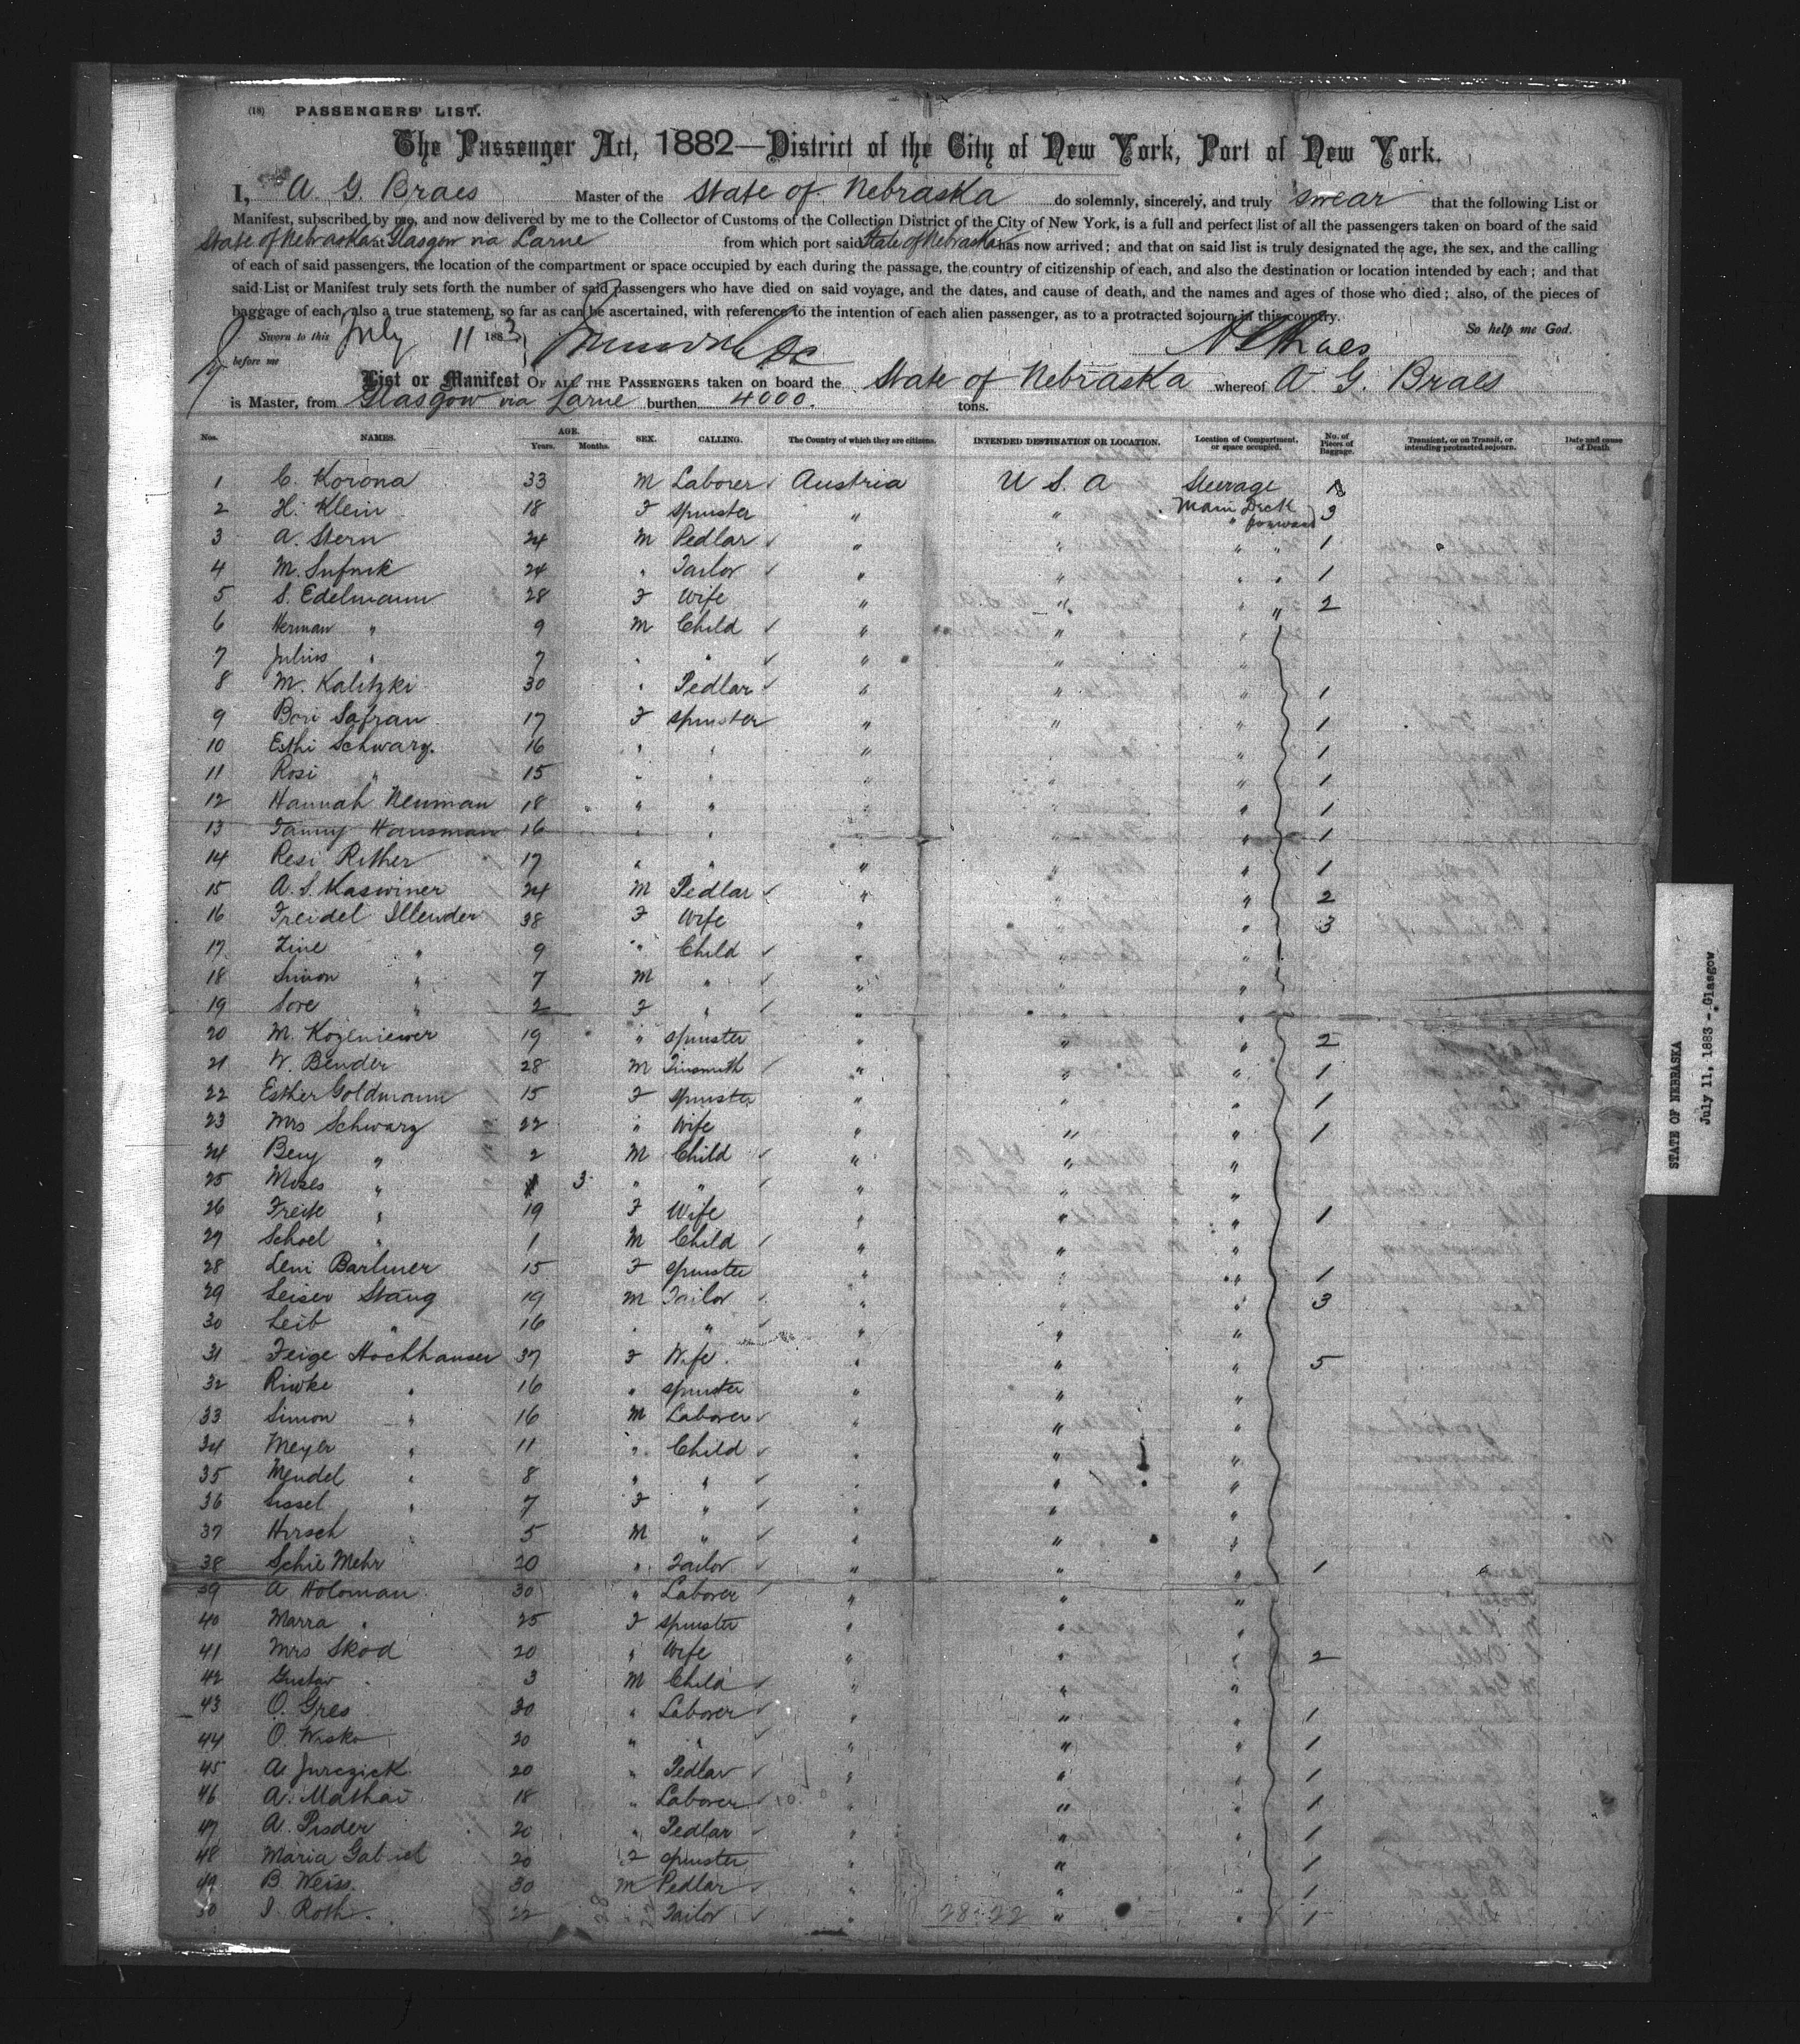 (18) PASSENGERS' LIST.
The Passenger Act, 1882—District of the City of New York, Port of New York.
I, A. G. Braes Master of the State of Nebraska do solemnly, sincerely, and truly swear that the following List or
Manifest, subscribed by me, and now delivered by me to the Collector of Customs of the Collection District of the City of New York, is a full and perfect list of all the passengers taken on board of the said
State of Nebraska at Glasgow via Larne from which port said State of Nebraska has now arrived; and that on said list is truly designated the age, the sex, and the calling
of each of said passengers, the location of the compartment or space occupied by each during the passage, the country of citizenship of each, and also the destination or location intended by each; and that
said List or Manifest truly sets forth the number of said passengers who have died on said voyage, and the dates, and cause of death, and the names and ages of those who died; also, of the pieces of
baggage of each, also a true statement, so far as can be ascertained, with reference to the intention of each alien passenger, as to a protracted sojourn in this country.
So help me God.
Sworn to this July 11 1883
before me A G Braes
List or Manifest OF ALL THE PASSENGERS taken on board the State of Nebraska whereof A G. Braes
is Master, from Glasgow via Larne burthen 4000. tons.
Nos. NAMES. AGE. Years. Months. SEX. CALLING. The Country of which they are citizens. INTENDED DESTINATION OR LOCATION. Location of Compartment, or space occupied. No. of Pieces of Baggage. Transient, or on Transit, or intending protracted sojourn. Date and cause of Death
1 C. Korona 33 M Laborer Austria U S. A Steerage 1
2 H. Klein 18 F Spinster " " Main Deck forward 3
3 A. Stern 24 M Pedlar " " " " 1
4 M. Sufnik 24 " Tailor " " " " 1
5 S. Edelmann 28 F Wife " " " " 2
6 Herman " 9 M Child " " "
7 Julius " 7 " " " " "
8 M. Kalitzki 30 " Pedlar " " " 1
9 Bori Safran 17 F Spinster " " " 1
10 Esthi Schwarz 16 " " " " 1
11 Rosi " 15 " " " " " 1
12 Hannah Neuman 18 " " " " " 1
13 Fanny Hausman 16 " " " " " 1
14 Resi Rither 17 " " " " " 1
15 A. S. Kaswiner 24 M Pedlar " " " 2
16 Freidel Illender 38 F Wife " " " 3
17 Zine " 9 " Child " " "
18 Simon " 7 M " " " "
19 Sore " 2 F " " " "
20 M. Kozeniewer 19 " Spinster " " " 2
21 W. Bender 28 M Tinsmith " " " 1
22 Esther Goldmann 15 F Spinster " " " 1
23 Mrs Schwarz 22 " Wife " " " 1
24 Beny " 2 M Child " " "
25 Moses " 3 " " " " "
26 Freite " 19 F Wife " " " 1
27 Schoel " 1 M Child " " "
28 Leni Barliner 15 F Spinster " " " 1
29 Leiser Stang 19 M Tailor " " " 3
30 Leib " 16 " " " " "
31 Feige Hochhauser 37 F Wife " " " 5
32 Riwke " 16 " Spinster " " "
33 Simon " 16 M Laborer " " "
34 Meyer " 11 " Child " " "
35 Mendel " 8 " " " " "
36 Sissel " 7 F " " " "
37 Hirsch " 5 M " " " "
38 Schie Mehr 20 " Tailor " " " 1
39 A Holoman 30 " Laborer " " "
40 Marra " 25 F Spinster " " "
41 Mrs Skod 20 " Wife " " " 2
42 Gustav " 3 M Child " " "
43 O. Gres 30 " Laborer " " " 1
44 O. Wisko 20 " " " " " 1
45 A. Jurczick 20 " Pedlar " " " 1
46 A. Mathai 18 " Laborer " " " 1
47 A. Pisder 20 " Pedlar " " " 1
48 Maria Gabriel 20 F Spinster " " " 1
49 B. Weiss 30 M Pedlar " " " 1
50 I Roth 22 " Tailor " " " 1
28-22
STATE OF NEBRASKA
July 11, 1883 - Glasgow